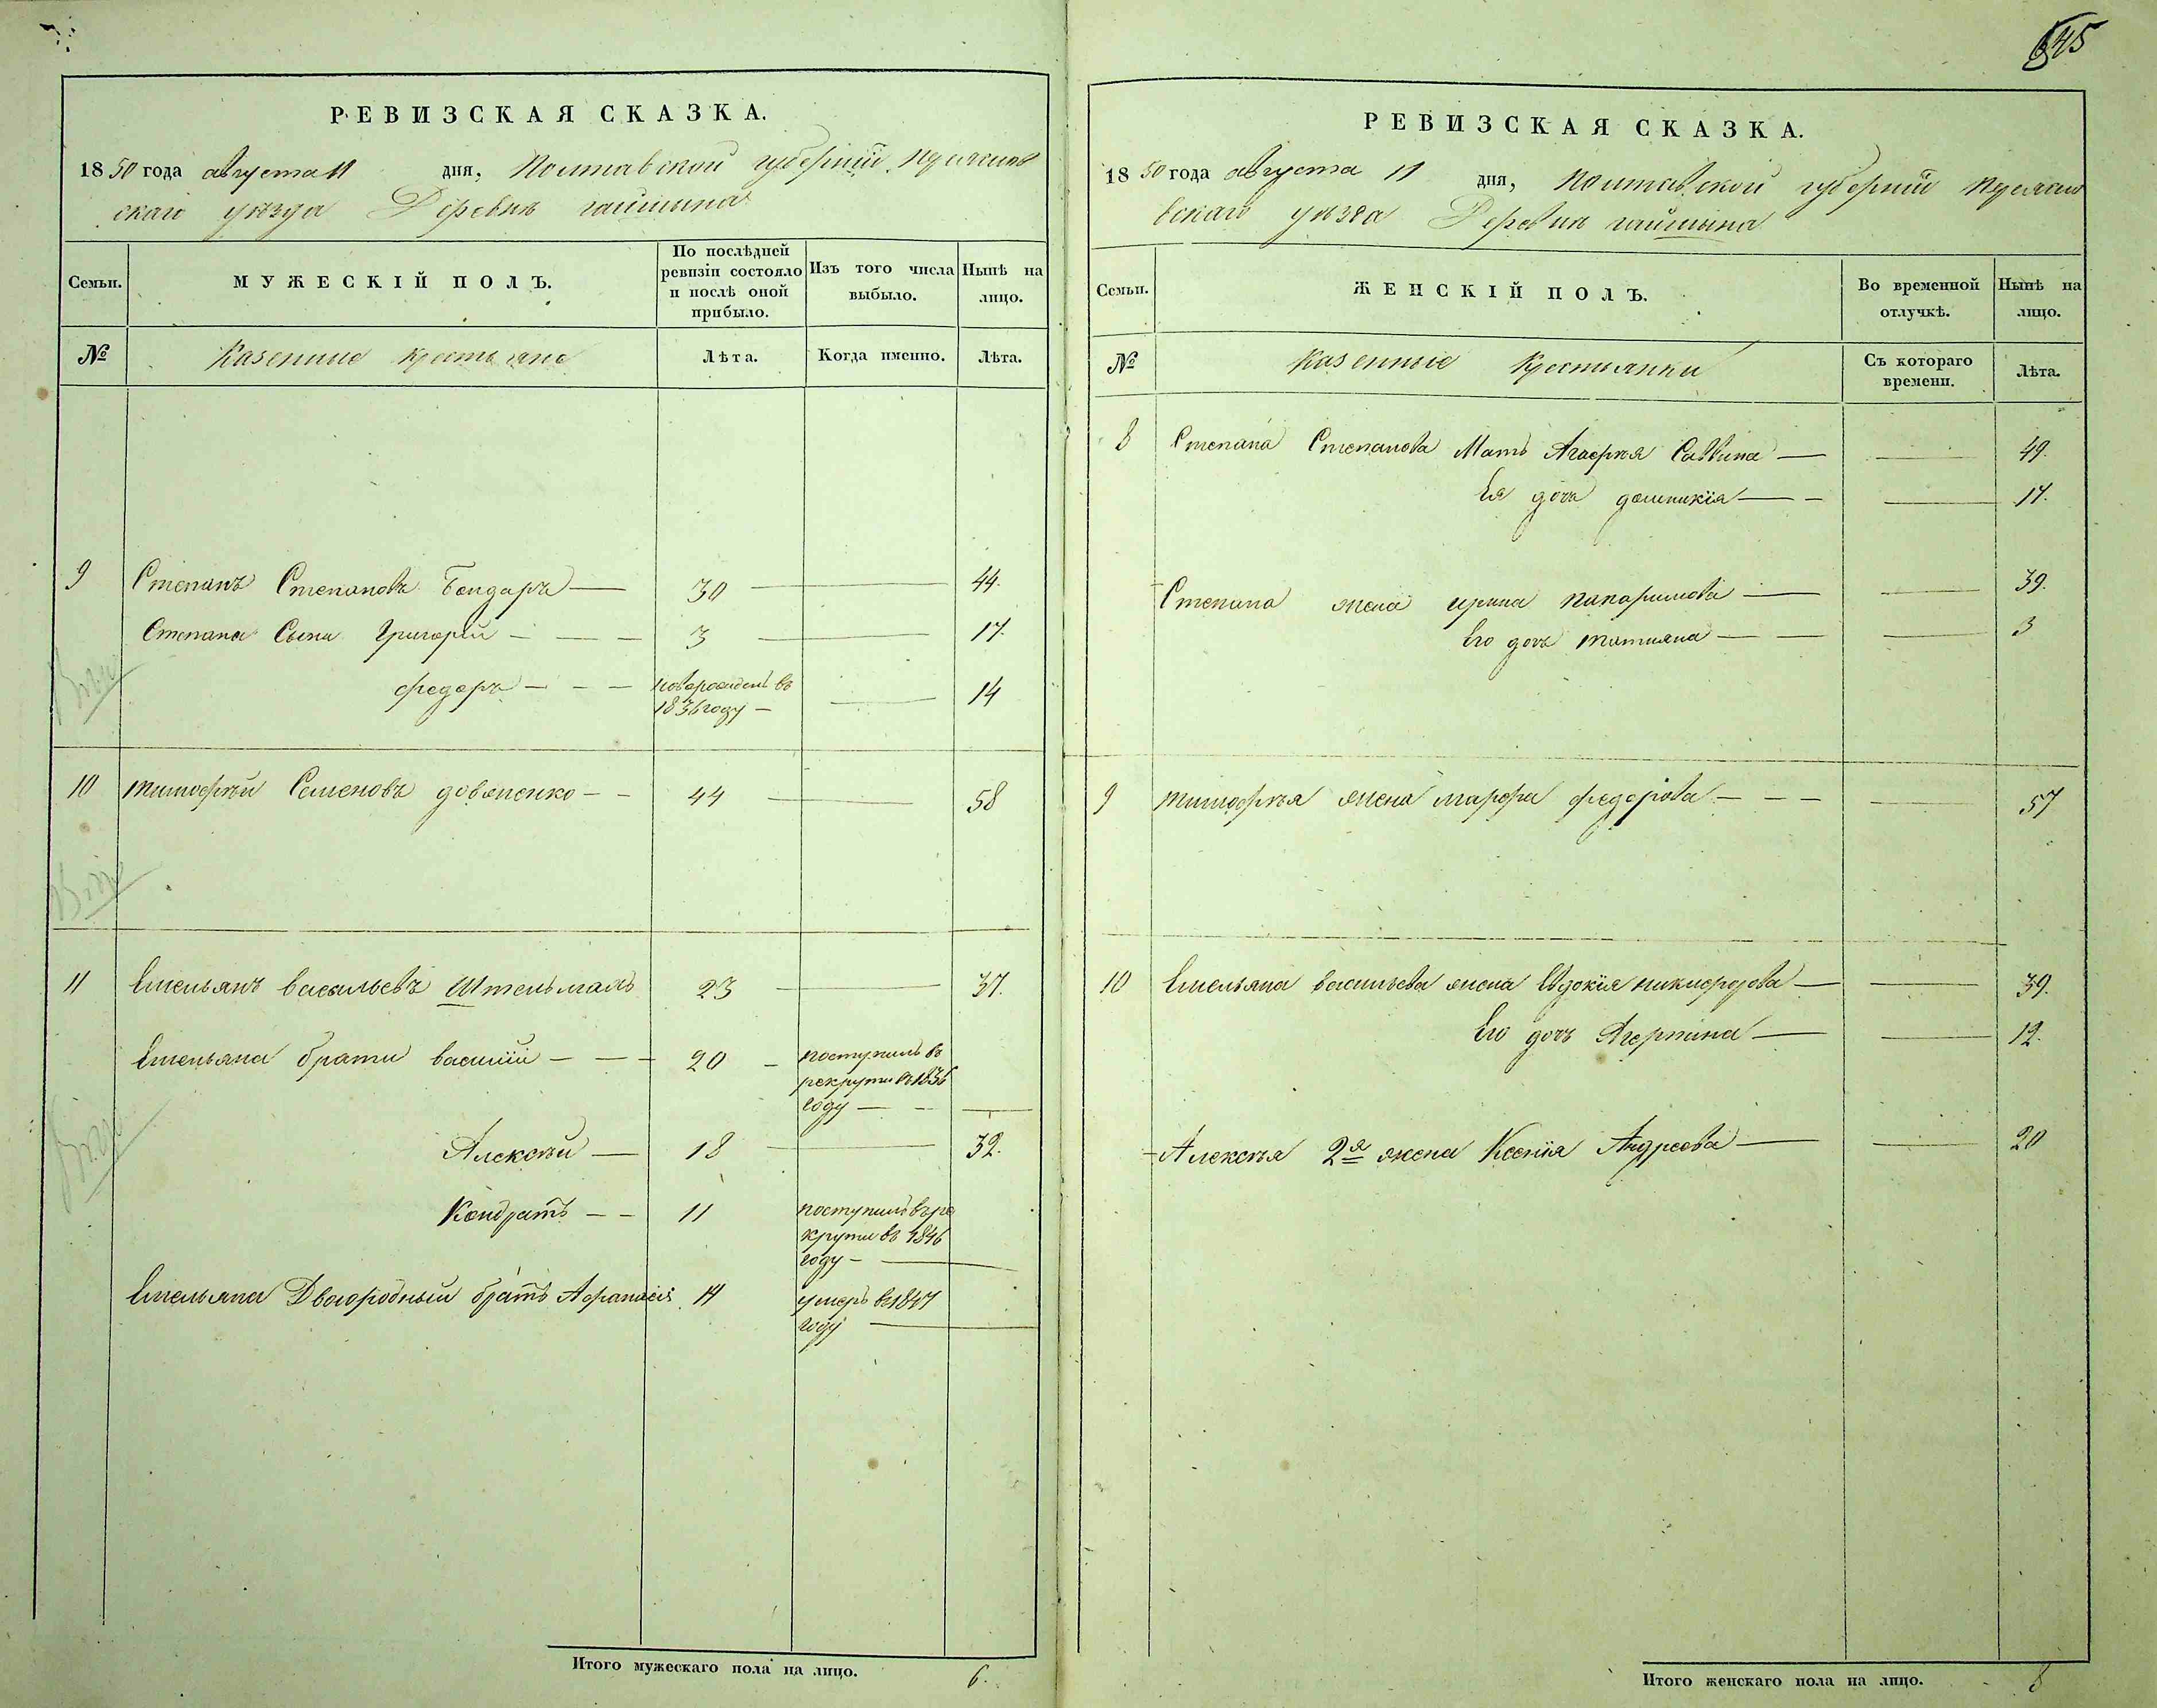 РЕВИЗСКАЯ СКАЗКА.
1850 года августа 11 дня, Полтавской губернии
скаго уѣзда Деревнѣ
Семьи.
МУЖЕСКІЙ ПОЛЪ.
По послѣдней
ревизіи состояло
и послѣ оной
прибыло.
Изъ того числа
выбыло.
Нынѣ на
лицо.
№
Казенные крестьяне
Лѣта.
Когда именно.
Лѣта.
9 Степанъ Степановъ Бондаръ — 30 — 44.
Степана Сыни Григорій — — — 3 — 17.
Федоръ — — — новорожденъ въ
1836 году — — 14
10 Тимофѣй Семеновъ — — 44 — 58
11 Емельянъ Васильевъ Штельмахъ 23 — 37.
Емельяна брати василій — — — 20 — поступилъ въ
рекрути въ 1836
году — —
Алексѣй — 18 — 32.
Кондратъ — — 11 поступилъ въ ре
крути въ 1846
году —
Емельяна Двоюродный братъ Афанасій 14 умеръ въ 1847
году —
Итого мужескаго пола на лицо. 6.
645
РЕВИЗСКАЯ СКАЗКА.
1850 года августа 11 дня, Полтавской губерніи
вскаго уѣзда Деревнѣ
Семьи.
ЖЕНСКІЙ ПОЛЪ.
Во временной
отлучкѣ.
Нынѣ на
лицо.
№
Казенные Крестьянки
Съ котораго
времени.
Лѣта.
8 Степана Степанова Мать Агафія Саввина — — 49.
Ея дочь домникія — — — 17.
Степана жена ирина — — 39.
Его дочь татияна — — — 3
9 Тимофѣя жена марфа федорова — — — — 57
10 Емельяна васильева жена Евдокія никифорова — — 39.
Его дочь — — 12.
Алексѣя 2я жена Ксенія Андреева — — 20
Итого женскаго пола на лицо. 8